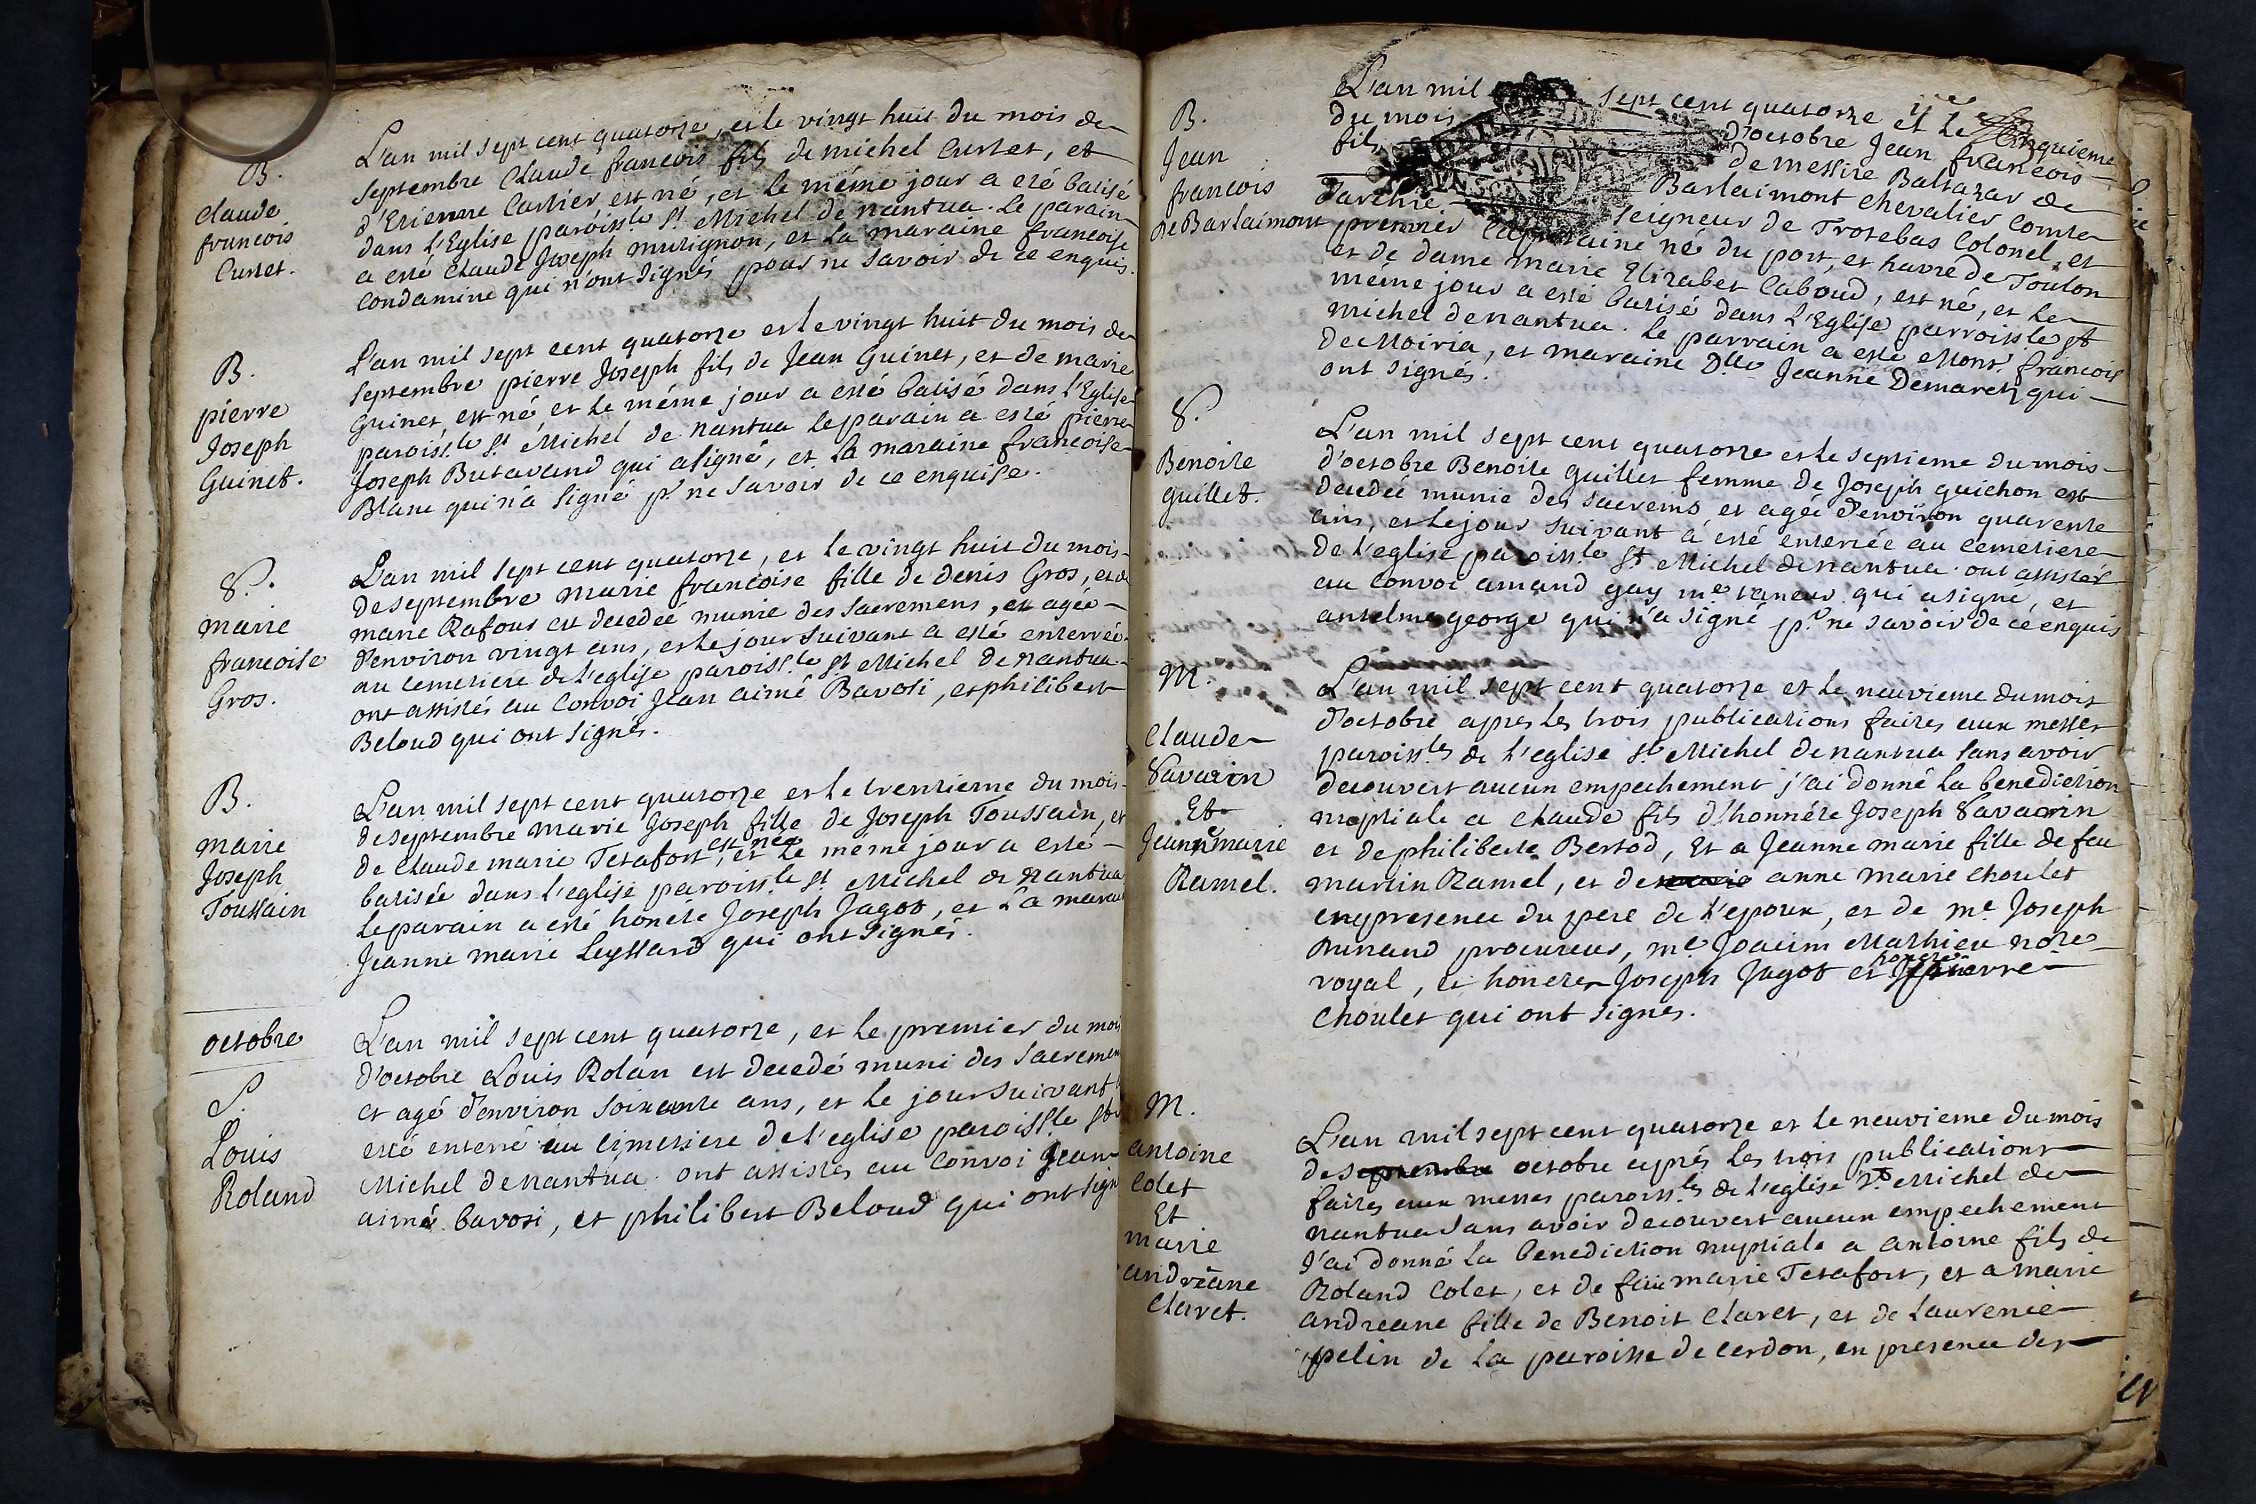 B.
Claude
francois
Curtet.
L'an mil sept cent quatorze, et le vingt huit du mois de
septembre Claude francois fils de michel Curtet, et
d'Etienne Cartier est né, et le méme jour a eté batisé
dans l'Eglise paroiss.le St. Michel de nantua. Le parain
a esté Claude Joseph murignon, et la maraine francoise
Condamine qui n'ont signés pour ne savoir de ce enquis.
B.
pierre
Joseph
Guinet.
L'an mil sept cent quatorze et le vingt huit du mois de
septembre pierre Joseph fils de Jean Guinet, et de marie
Guinet, est né et le méme jour a esté batisé dans l'Eglise
paroiss.le St Michel de nantua le parain a esté pierre
Joseph Butavand qui a signé, et la maraine francoise
Blanc qui n'a signé pr ne savoir de ce enquise.
S.
marie
francoise
Gros.
L'an mil sept cent quatorze, et le vingt huit du mois
de septembre marie francoise fille de denis Gros, et de
marie Rafour est decedeé munie des sacremens, et agée
d'environ vingt ans, et le jour suivant a esté enterrée
au cemetiere de l'eglise paroiss.le St Michel de nantua
ont assistés au convoi Jean aimé Bavosi, et philibert
Beloud qui ont signés.
B.
marie
Joseph
Toussain
L'an mil sept cent quatorze et le trentieme du mois
de septembre marie Joseph fille de Joseph Toussain, et
de Claude marie Tetafort, est née et le méme jour a esté
batisée dans l'eglise paroiss.le St Michel de nantua
le parain a esté honéte Joseph Jagot, et la marai
Jeanne marie Leyssard qui ont signés.
octobre
S.
Louis
Roland
L'an mil sept cent quatorze, et le premier du mois
d'octobre Louis Rolan est decedé muni des sacremens
et agé d'environ soixante ans, et le jour suivant
esté enterré au cimetiere de l'eglise paroiss.le St
Michel de nantua ont assistés au convoi Jean
aimé bavosi, et philibert Beloud qui ont sign
B.
Jean
francois
de Barlaimont
L'an mil sept cent quatorze et le cinquieme
du mois d'octobre Jean francois
fils de messire Baltazar de
Barlaimont chevalier comte
darchie seigneur de Trotebas Colonel, et
premier capitaine né du port, et havre de Toulon
et de dame marie Elizabet Caboud, est né, et le
méme jour a esté batisé dans l'Eglise parroiss.le St
michel de nantua. Le parrain a esté Monsr francois
de Moiria, et maraine Dlle Jeanne Demaretz qui
ont signés.
S.
Benoite
guillet.
L'an mil sept cent quatorze et le septieme du mois
d'octobre Benoite Guillet femme de Joseph guichon est
decedeé munie des sacrems et agée d'environ quarente
ans, et le jour suivant à esté enterrée au cemetiere
de l'eglise paroiss.le St Michel de nantua ont assistés
au convoi amand gay me taneur qui a signé, et
antelme george qui n'a signé pr ne savoir de ce enquis
M.
Claude
Savarin
Et
Jeanne marie
Ramel.
L'an mil sept cent quatorze et le neuvieme du mois
d'octobre apres les trois publications faites aux messes
paroiss.les de l'eglise St Michel de nantua sans avoir
decouvert aucun empechement j'ai donné la benediction
nuptiale a claude fils d'honnéte Joseph Savarin
et de philiberte Bertod, Et a Jeanne marie fille de feu
martin Ramel, et de marie anne marie choulet
en presence du pere de l'epoux, et de me Joseph
Runand procureur, me Joacim Mathieu notre
royal, et honeter Joseph Jagot et honete pierre
Choulet qui ont signés.
M.
antoine
Colet
Et
marie
andréane
Claret.
L'an mil sept cent quatorze et le neuvieme du mois
de septembre octobre aprés les trois publications
faites aux messes paroiss.les de l'eglise St Michel de
nantua sans avoir decouvert aucun empechement
J'ai donné la benediction nuptiale a antoine fils de
Roland Colet, et de feu marie Tetafort, et a marie
andreane fille de Benoit Claret, et de Laurence
pelin de la paroisse de Cerdon, en presence des